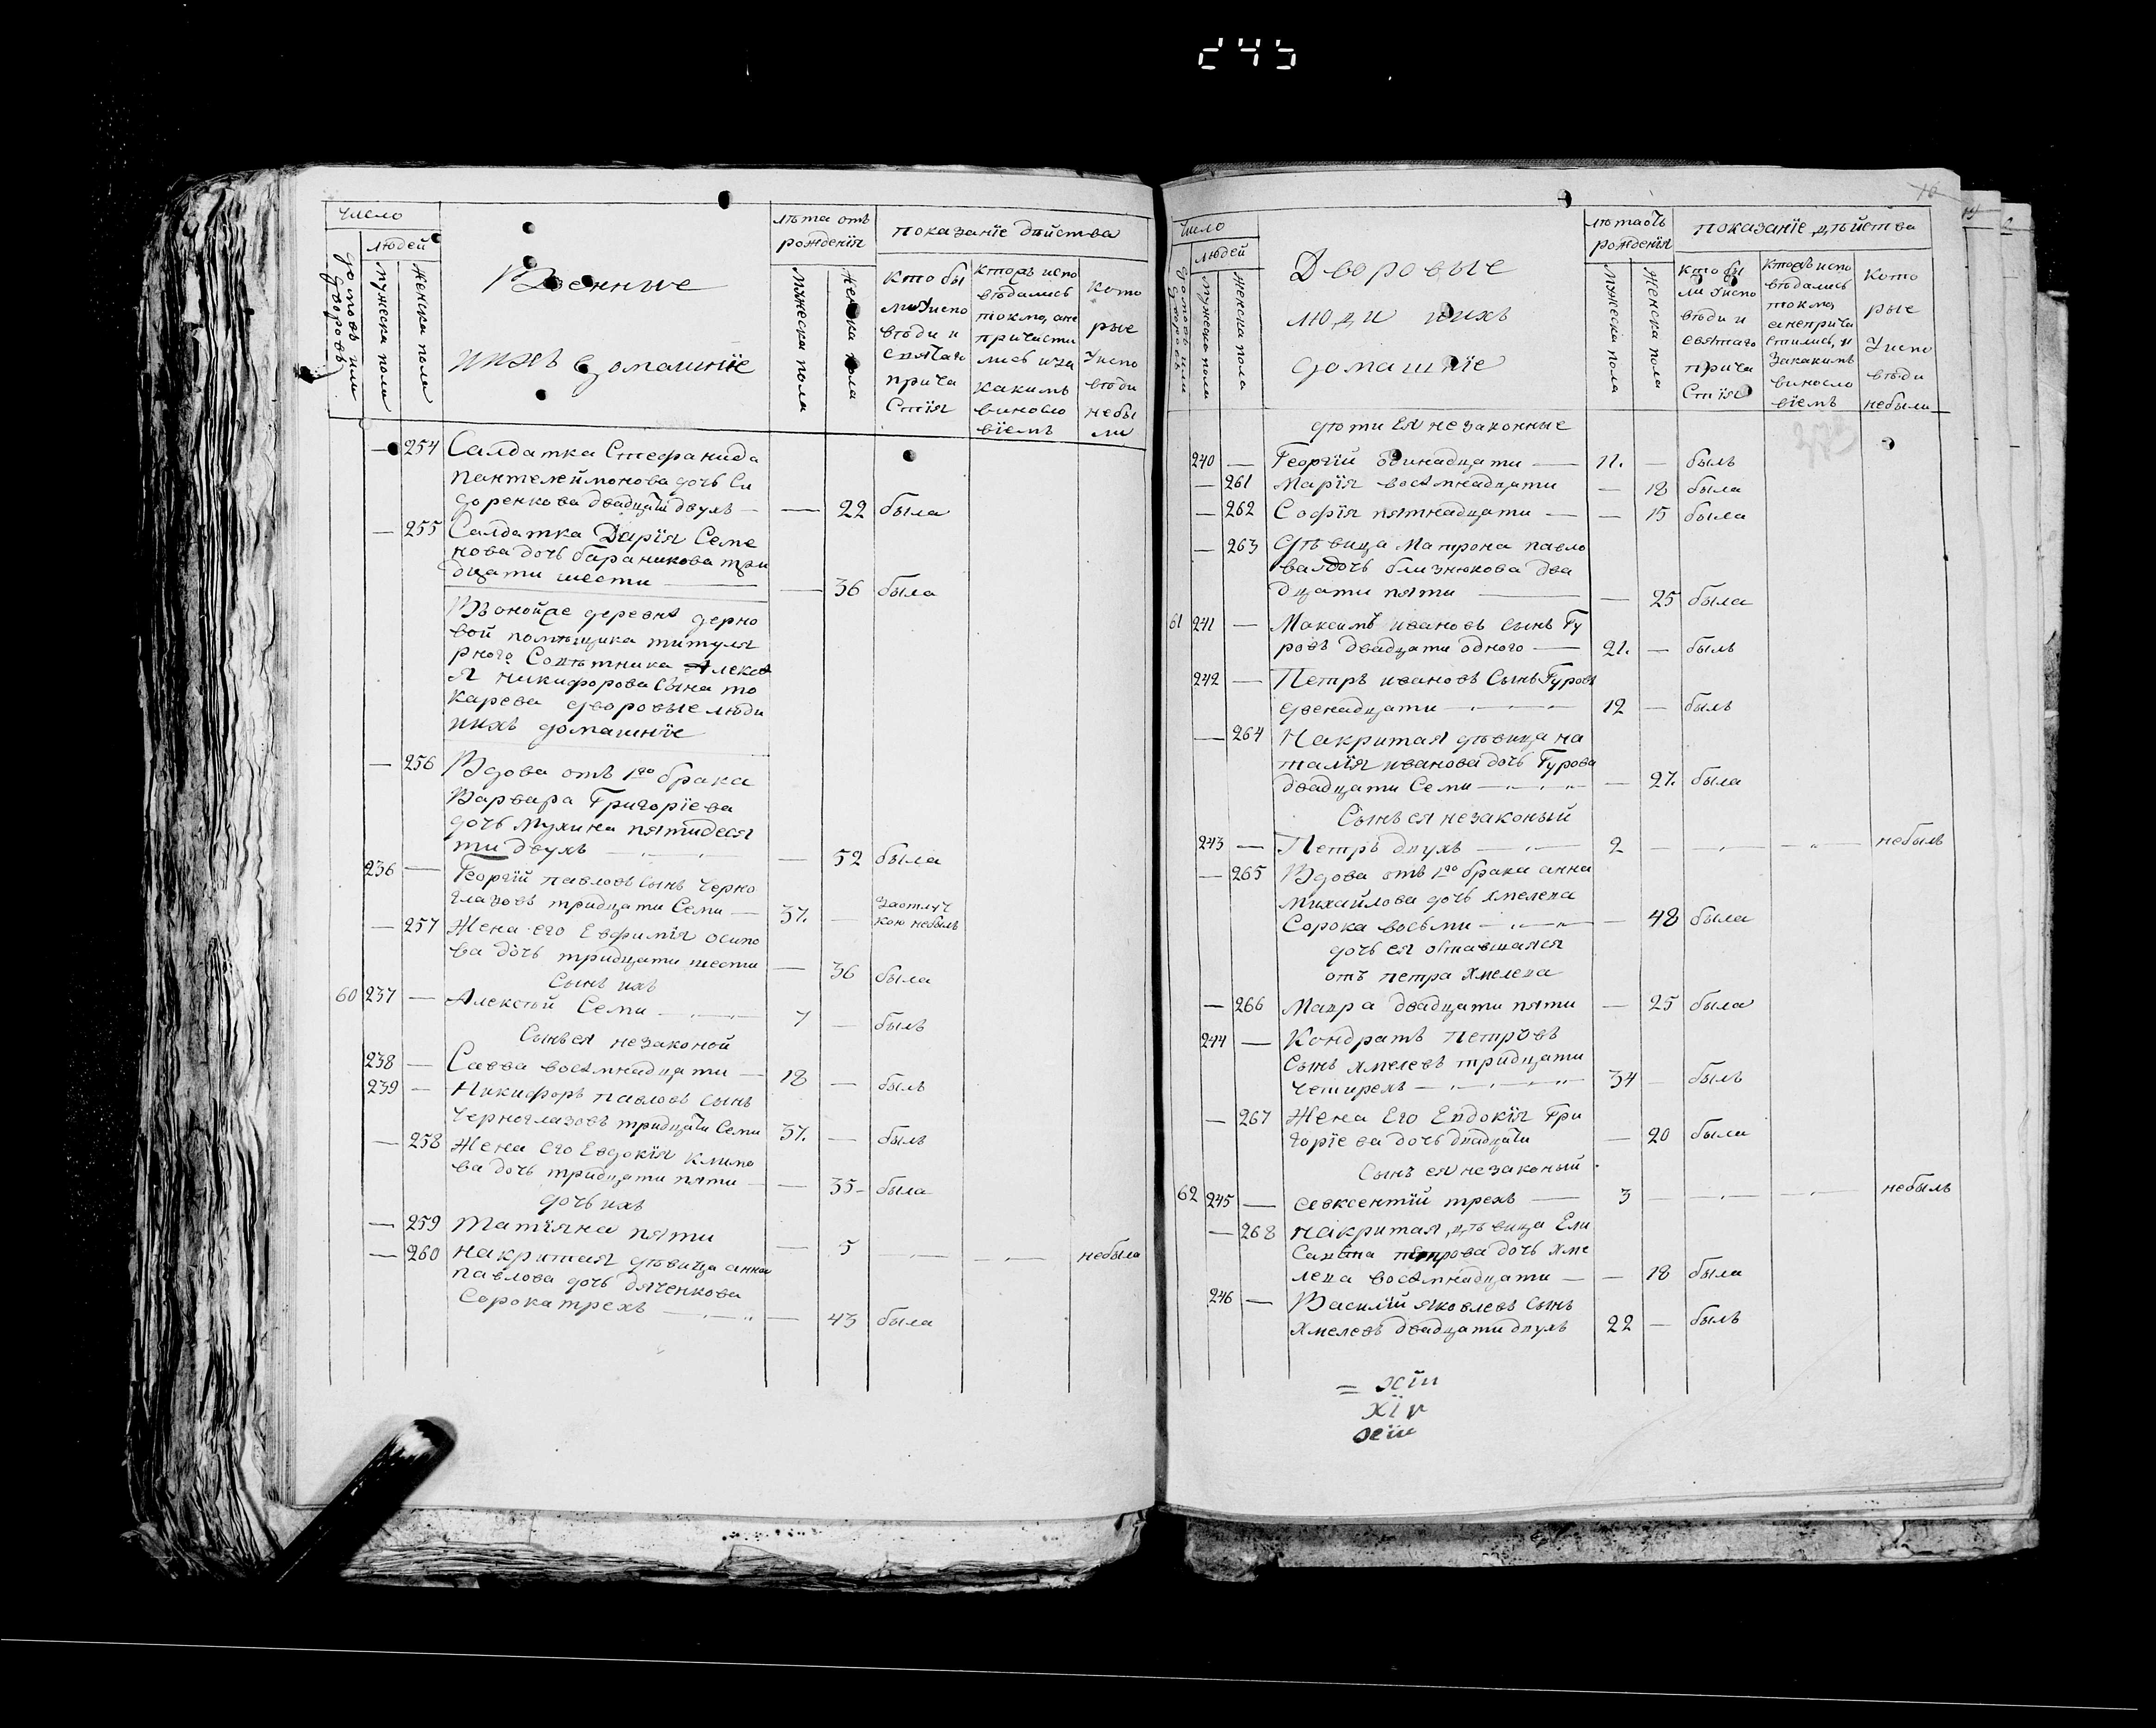 245
Число
людей
домовъ или дворовъ
мужеска пола
женска пола
Военные
ииxъ домашнїе
лѣта отъ
рожденїя
мужеска пола
женска пола
показанїе дѣйства
кто бы
ли Уиспо
вѣди и
святаго
прича
стїя
ктоѣ испо
вѣдались
токмо, ане
причасти
лись иза
какимъ
виносло
вїемъ
кото
рые
Уиспо
вѣди
небы
ли
— 254 Салдатка Стефанида
пантелеймонова дочь Си
доренкова двадцати двухъ — — 22 была
— 255 Салдатка Дарїя Семе
нова дочь бараникова три
дцати шести — — 36 была
Въ онойже деревнѣ дерно
вой помѣщика титуля
рного Совѣтника Алексѣ
я никифорова сына то
карева дворовые люди
ииxъ домашнїе
— 256 Вдова отъ 1го брака
Варвара Григорїева
дочь мухина пятидеся
ти двухъ — — 52 была
236 — Георгїй павловъ сынъ черно
глазовъ тридцати Семи — 37. — заотлуч
кою небылъ
— 257 Жена его Евфимїя осипо
ва дочь тридцати шести — 36 была
Сынъ ихъ
60 237 — Алексѣй Семи — 7 — былъ
Сынъ ея незаконой
238 — Савва восемнадцати — 18 — былъ
239 — Никифоръ павловъ сынъ
черноглазовъ тридцати Семи 37. — былъ
— 258 Жена его Евдокїя климо
ва дочь тридцати пяти — — 35 — была
дочь ихъ
— 259 татїяна пяти — 5 — — небыла
— 260 накритая дѣвица анна
павлова дочь дяченкова
Сорока трехъ — — 43 была
10
Число
людей
домовъ или дворовъ
мужеска пола
женска пола
Дворовые
люди ииxъ
домашнїе
лѣта отъ
рожденїя
мужеска пола
женска пола
показанїе дѣйства
кто бы
ли Уиспо
вѣди и
святаго
прича
стїя
ктоѣ испо
вѣдались
токмо,
анеприча
стились, и
закакимъ
виносло
вїемъ
кото
рые
Уиспо
вѣди
небыли
дѣти ея незаконные
240 — Георгїй одинадцати — 11. — былъ
— 261 Марїя восемнадцати — 18 была
— 262 Софїя пятнадцати — — 15 была
— 263 дѣвица Матрона павло
ва дочь близнюкова два
дцати пяти — — 25 была
61 241 — Максимъ ивановъ сынъ Гу
ровъ двадцати одного — 21. — былъ
242 — Петръ ивановъ Сынъ Гуровъ
двенадцати — 12 — былъ
— 264 Накритая дѣвица на
талїя иванова дочь Гурова
двадцати Семи — — 27. была
Сынъ ея незаконый
243 — Петръ двухъ — 2 — — — небылъ
— 265 Вдова отъ 1го брака анна
михайлова дочь хмелева
Сорока восьми — — 48 была
дочь ея оставшаяся
отъ петра хмелева
— 266 Мавра двадцати пяти — 25 была
244 — Кондратъ Петровъ
сынъ хмелевъ тридцати
четирехъ — 34 — былъ
— 267 Жена Его Евдокїя Гри
горїева дочь двадцати — 20 была
Сынъ ея незаконый
62 245 — евксентїй трехъ — 3 — — — небылъ
— 268 накритая, дѣвица Ели
савена петрова дочь хме
лева восемнадцати — — 18 была
246 — Василїй яковлевъ сынъ
хмелевъ двадцати двухъ 22 — былъ
= xiii
xiv